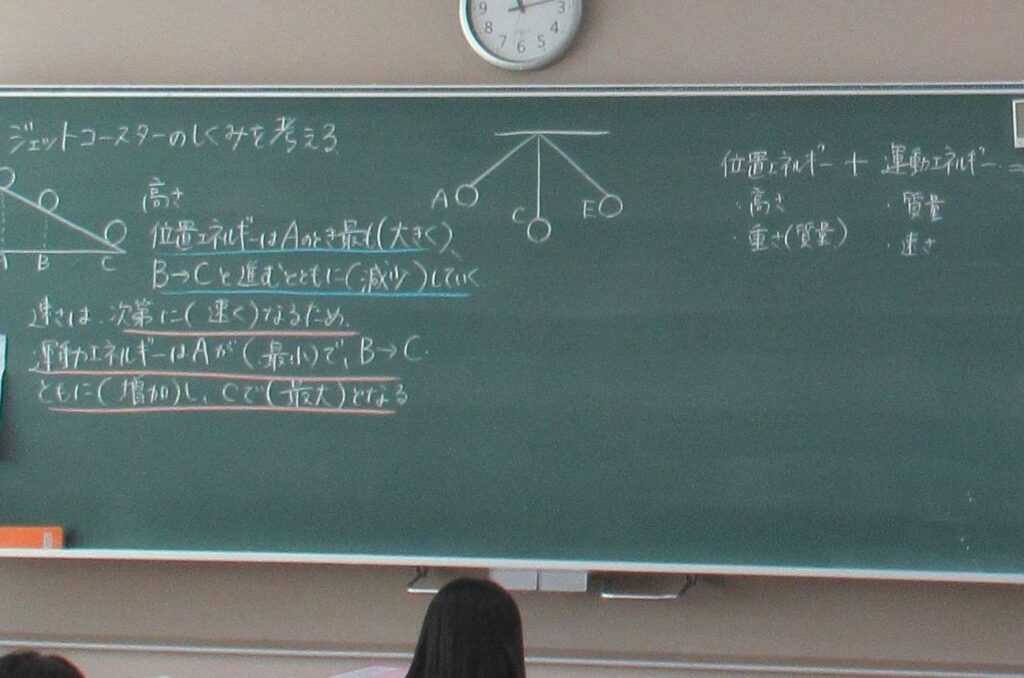 9 3
8 4
7 6 5
ジェットコースターのしくみを考える
A B C
高さ
位置エネルギーはAのとき最も(大きく)、
B→Cと進むとともに(減少)していく
速さは、次第に(速く)なるため、
運動エネルギーはAが(最小)で、B→C
ともに(増加)し、Cで(最大)となる
A C E
位置エネルギー + 運動エネルギー =
・高さ ・質量
・重さ(質量) ・速さ